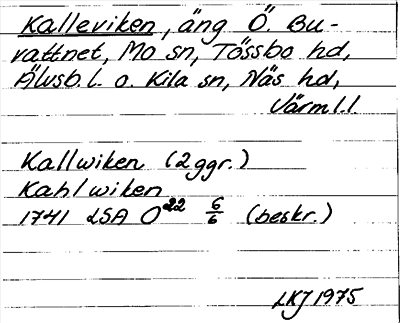 Kalleviken, äng Ö Bu-
vattnet, Mo sn, Tössbo hd,
Älvsb. l. o. Kila sn, Näs hd,
Värml. l.
Kallwiken (2 ggr.)
Kahlwiken
1741 LSA O22 6/6 (beskr.)
LKJ 1975